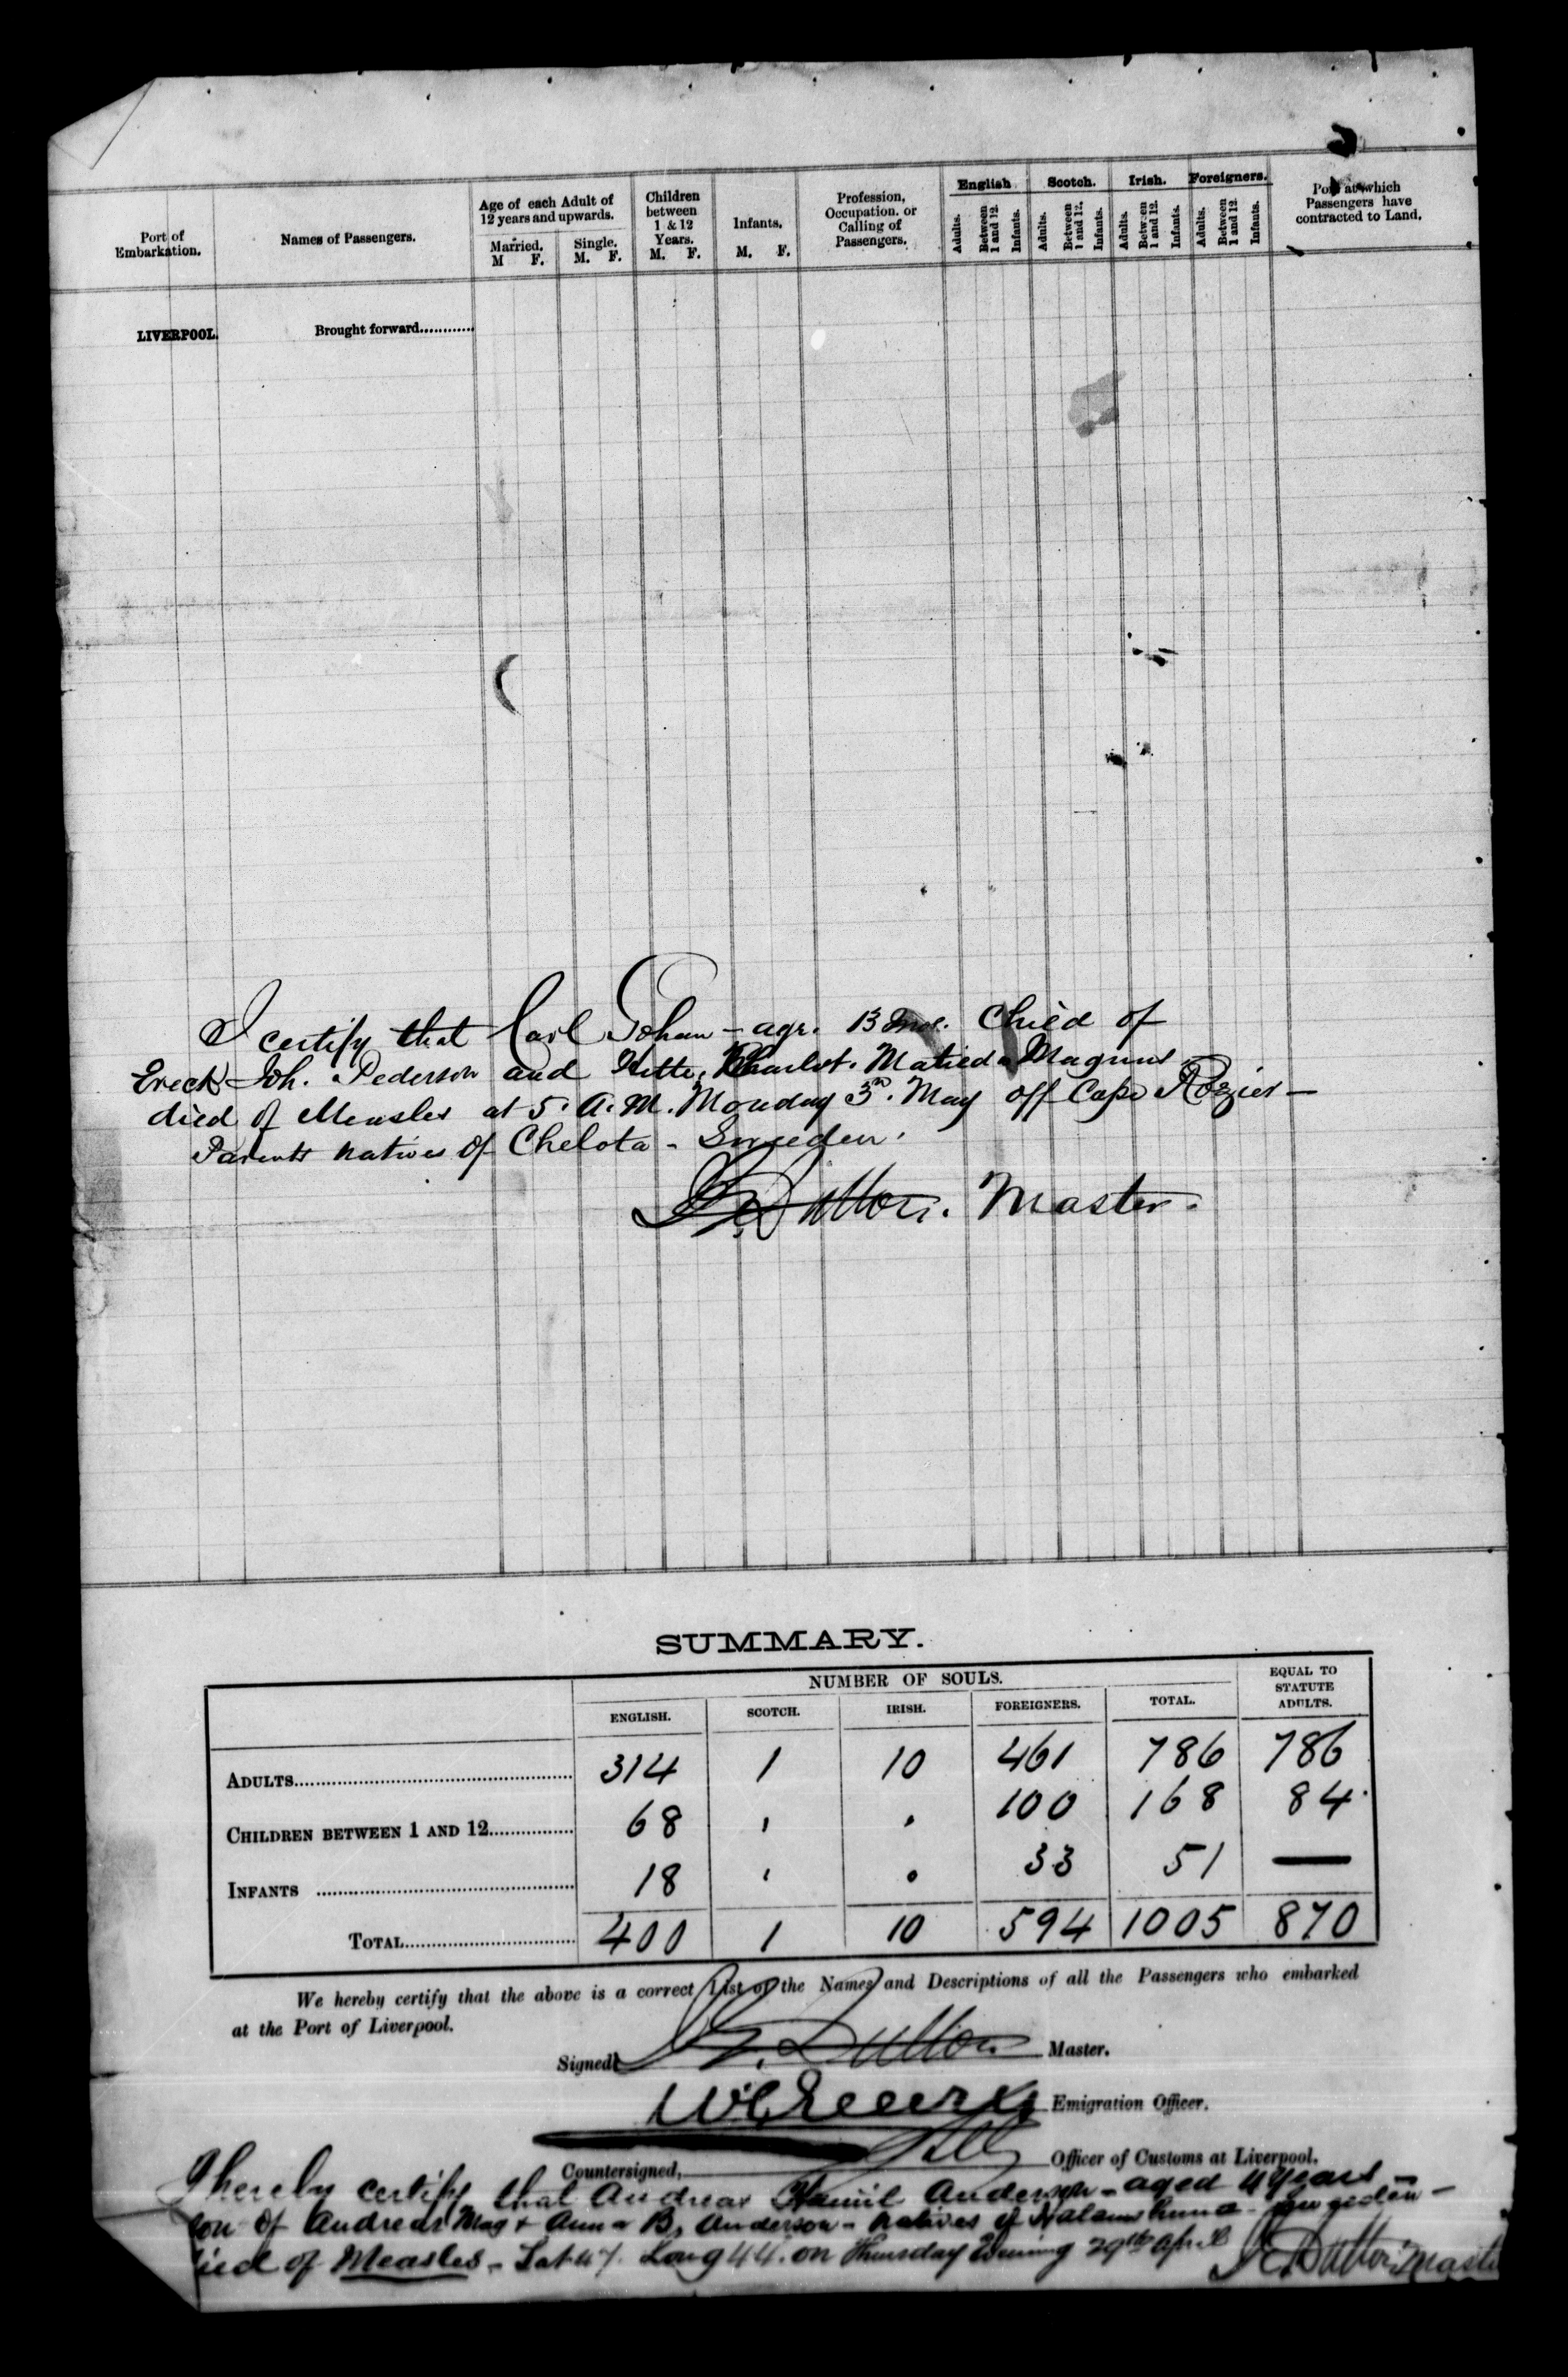 Port of Embarkation.
Names of Passengers.
Age of each Adult of 12 years and upwards.
Married. M F.
Single. M. F.
Children between 1 & 12 Years. M. F.
Infants. M. F.
Profession, Occupation. or Calling of Passengers.
English Adults. Between 1 and 12. Infants.
Scotch. Adults. Between 1 and 12. Infants.
Irish. Adults. Between 1 and 12. Infants.
Foreigners. Adults. Between 1 and 12 Infants.
Port at which Passengers have contracted to Land.
LIVERPOOL. Brought forward............
I certify that Carl Johan - age. 13 Mos. Child of
Erick Joh. Pederson and Charlot. Matied Magnus
died of Measles at 5. A.M. Monday 3rd. May off Cape Rozier -
Parents natives of Chelota - Sweden.
Dutton. Master.
SUMMARY.
NUMBER OF SOULS. EQUAL TO STATUTE ADULTS.
ENGLISH. SCOTCH. IRISH. FOREIGNERS. TOTAL.
ADULTS 314 1 10 461 786 786
CHILDREN BETWEEN 1 AND 12 68 , . 100 168 84
INFANTS 18 , . 33 51 —
TOTAL 400 1 10 594 1005 870
We hereby certify that the above is a correct List of the Names and Descriptions of all the Passengers who embarked
at the Port of Liverpool.
Signed Dutton Master.
Emigration Officer.
Countersigned, Officer of Customs at Liverpool.
I hereby certify that Andreas Anderson - aged 4 years -
son of Andreas Mag & Anna B. Anderson - natives of
died of Measles - Lat 47. Long 44. on Thursday Evening 29th April
Dutton Maste